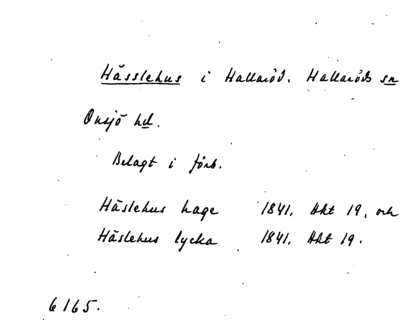 Hässlehus i Hallaröd. Hallaröds sn
Onsjö hd.
Belagt i förb.
Häslehus hage 1841. Akt 19, och
Häslehus lycka 1841. Akt 19.
6165.